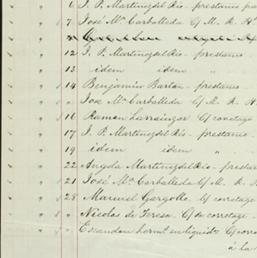 " " 6 J. P. Martinez del Rio - prestamo
" " 7 José Ma. Carballeda c/ M. R. H
" "
" " 12 J. P. Martinez del Rio - prestamo
" " 13 idem idem "
" " 14 Benjamin Barton - prestamo
" " " José Ma. Carballeda c/ M. R. H
" " 16 Ramon Larrainzar c/ corretage
" " 17 J. P. Martinez del Rio - prestamo
" " 19 idem idem "
" " 22 Angela Martinez del Rio - prestamo
" " 21 José Ma. Carballeda c/ M. R.
" " 28 Manuel Gargollo c/ corretage
" " " Nicolas de Teresa c/ de corretage
" " " Escandon herms. en liquidn.
á la